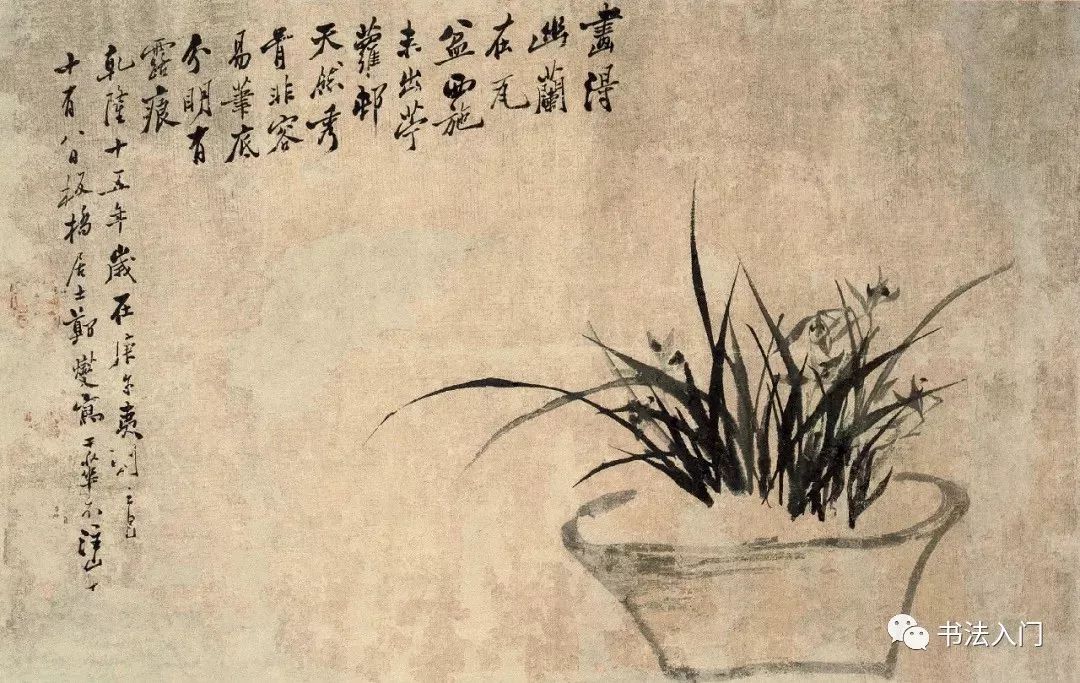 畫得
幽蘭
在瓦
盆西施
未出苧
蘿邨
天然秀
骨非容
易筆底
分明有
露痕
乾隆十五年歲在庚午夷則之
十有八日板橋居士鄭燮寫于
书法入门